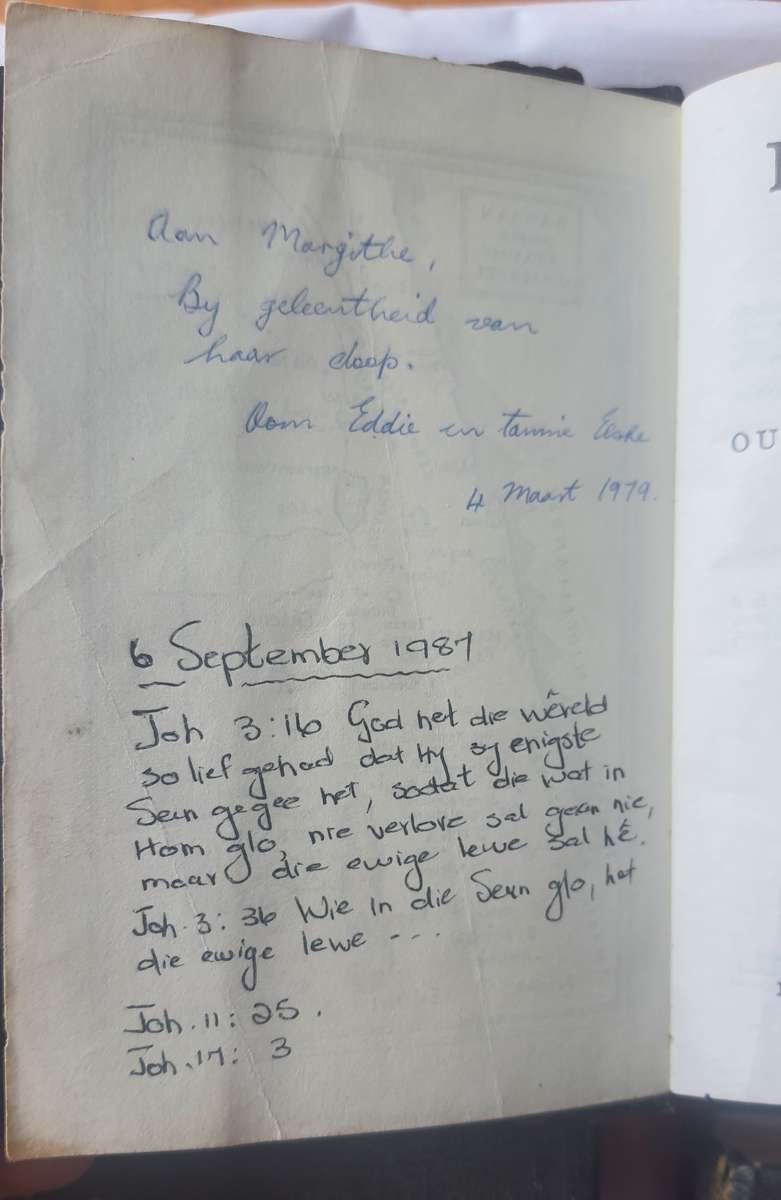 Aan Margithe,
By geleentheid van
haar doop.
Oom Eddie en tannie
4 Maart 1979.
6 September 1987
Joh 3:16 God het die wêreld
so lief gehad dat Hy sy enigste
Seun gegee het, sodat die wat in
Hom glo, nie verlore sal gaan nie,
maar die ewige lewe sal hê.
Joh. 3: 36 Wie in die Seun glo, het
die ewige lewe ---
Joh. 11: 25.
Joh. 17: 3
OU